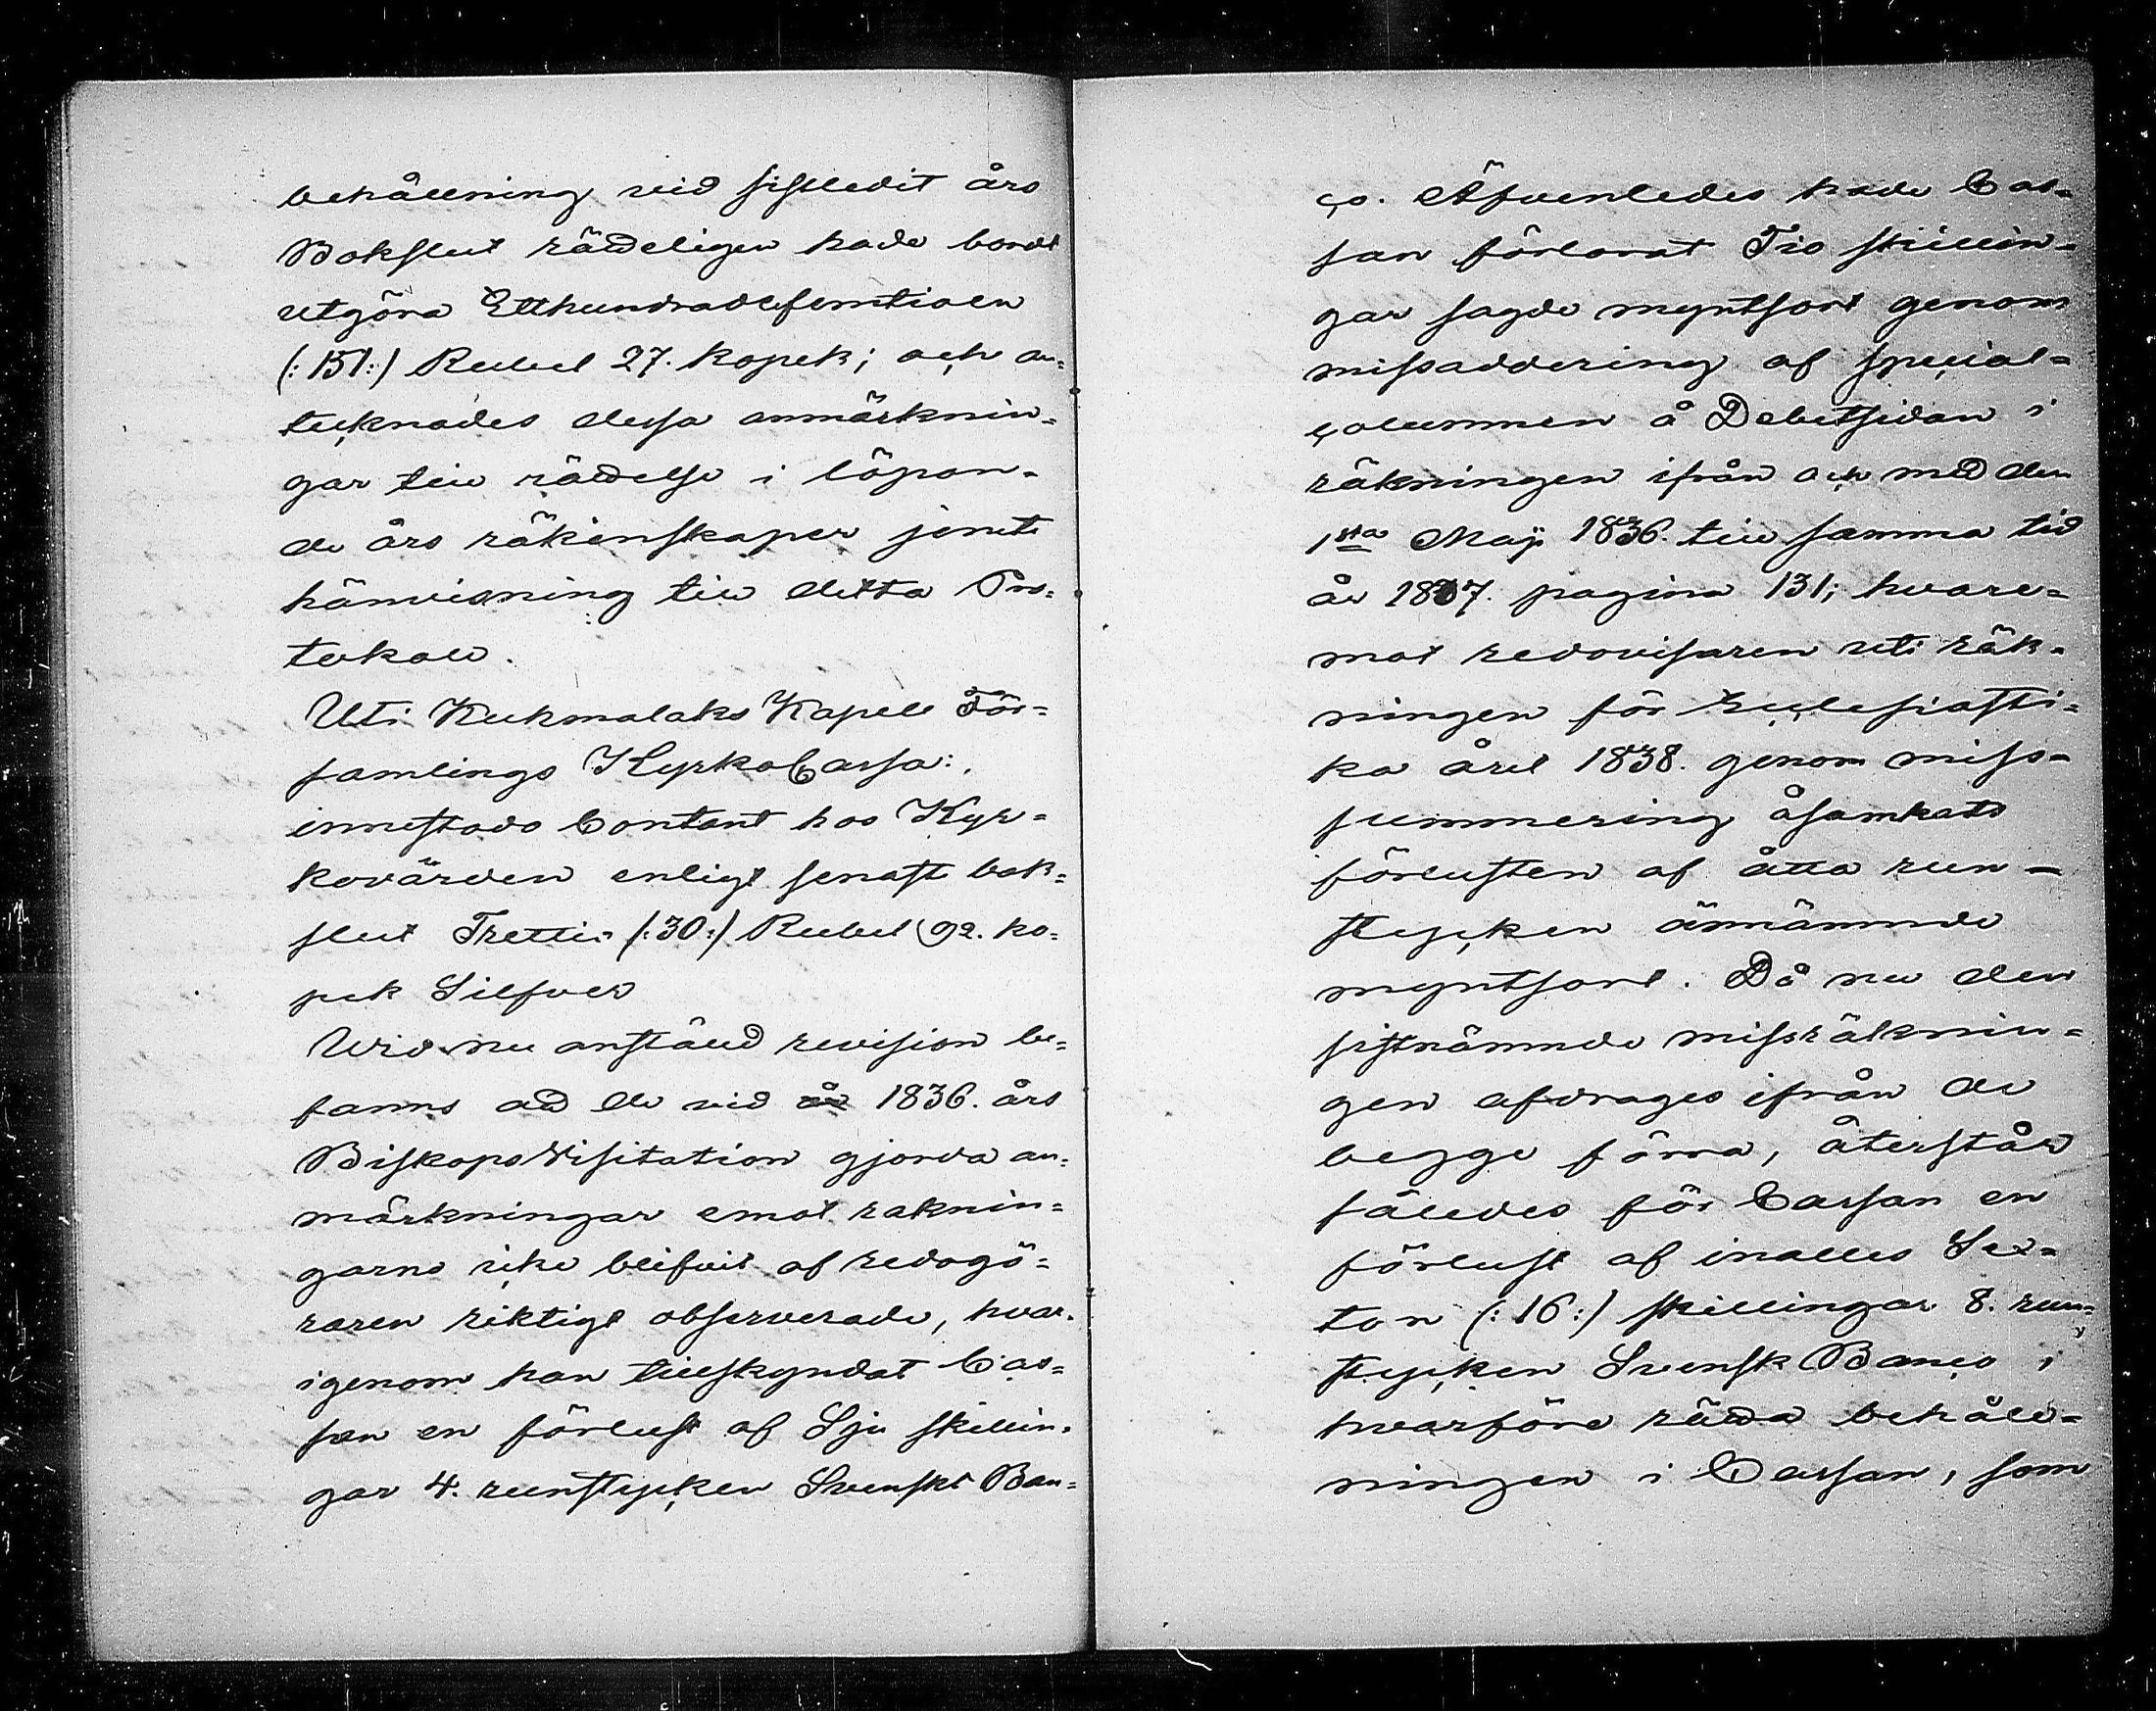 behållning vid sistledit års
Bokslut rätteligen hade bordt
utgöra Etthundradefemtioen
(: 151 :) Rubel 27. kopek; och an=
tecknades dessa anmärknin=
gar till rättelse i löpan=
de års räkenskaper jemte
hänvisning till detta Pro=
tokoll.
Uti Kukmalaks Kapell För=
samlings KyrkoCassa:,
innestods Contant hos Kyr=
kovärden enligt senaste bok=
slut Trettio (: 30 :) Rubel 92. ko=
pek Silfver
Wid nu anstäld revision be=
fanns att de vid år 1836. års
BiskopsVisitation gjorda an=
märkningar emot räknin=
garne icke blifvit af redogö=
raren riktigt observerade, hvar=
igenom han tillskyndat Cas=
san en förlust af Sju skillin=
gar 4. runstycken Svenskt Ban=
co. Äfvenledes hade Cas=
san förlorat Tio skillin=
gar sagde myntsort genom
missaddering af special=
columnen å Debetsidan i
räkningen ifrån och med den
1sta Maji 1836. till samma tid
år 1837. pagina 131; hvare=
mot redovisaren uti räk=
ningen för Ecclesiasti=
ka året 1838. genom miss=
summering åsamkats
förlusten af åtta run=
stycken ännämnde
myntsort. Då nu den
sistnämnde missräknin=
gen afdrages ifrån de
begge förra, återstår
således för Cassan en
förlust af inalles Sex=
ton (: 16 :) skillingar 8. run=
stycken Svensk Banco i
hvarföre rätta behåll=
ningen i Cassan, som